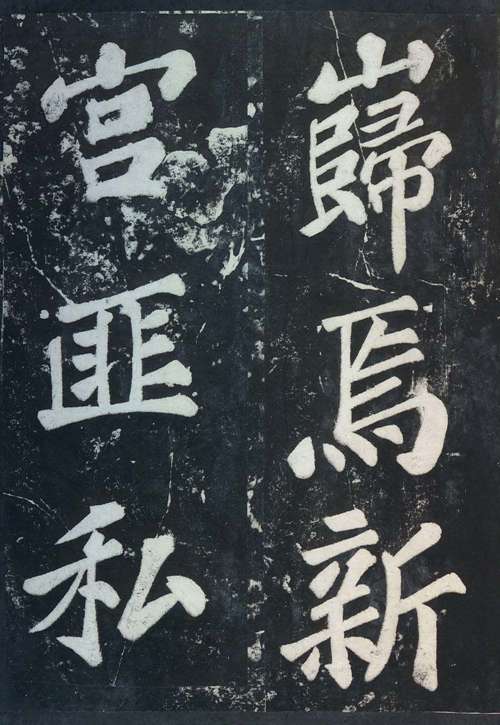 巋焉新
宫匪私